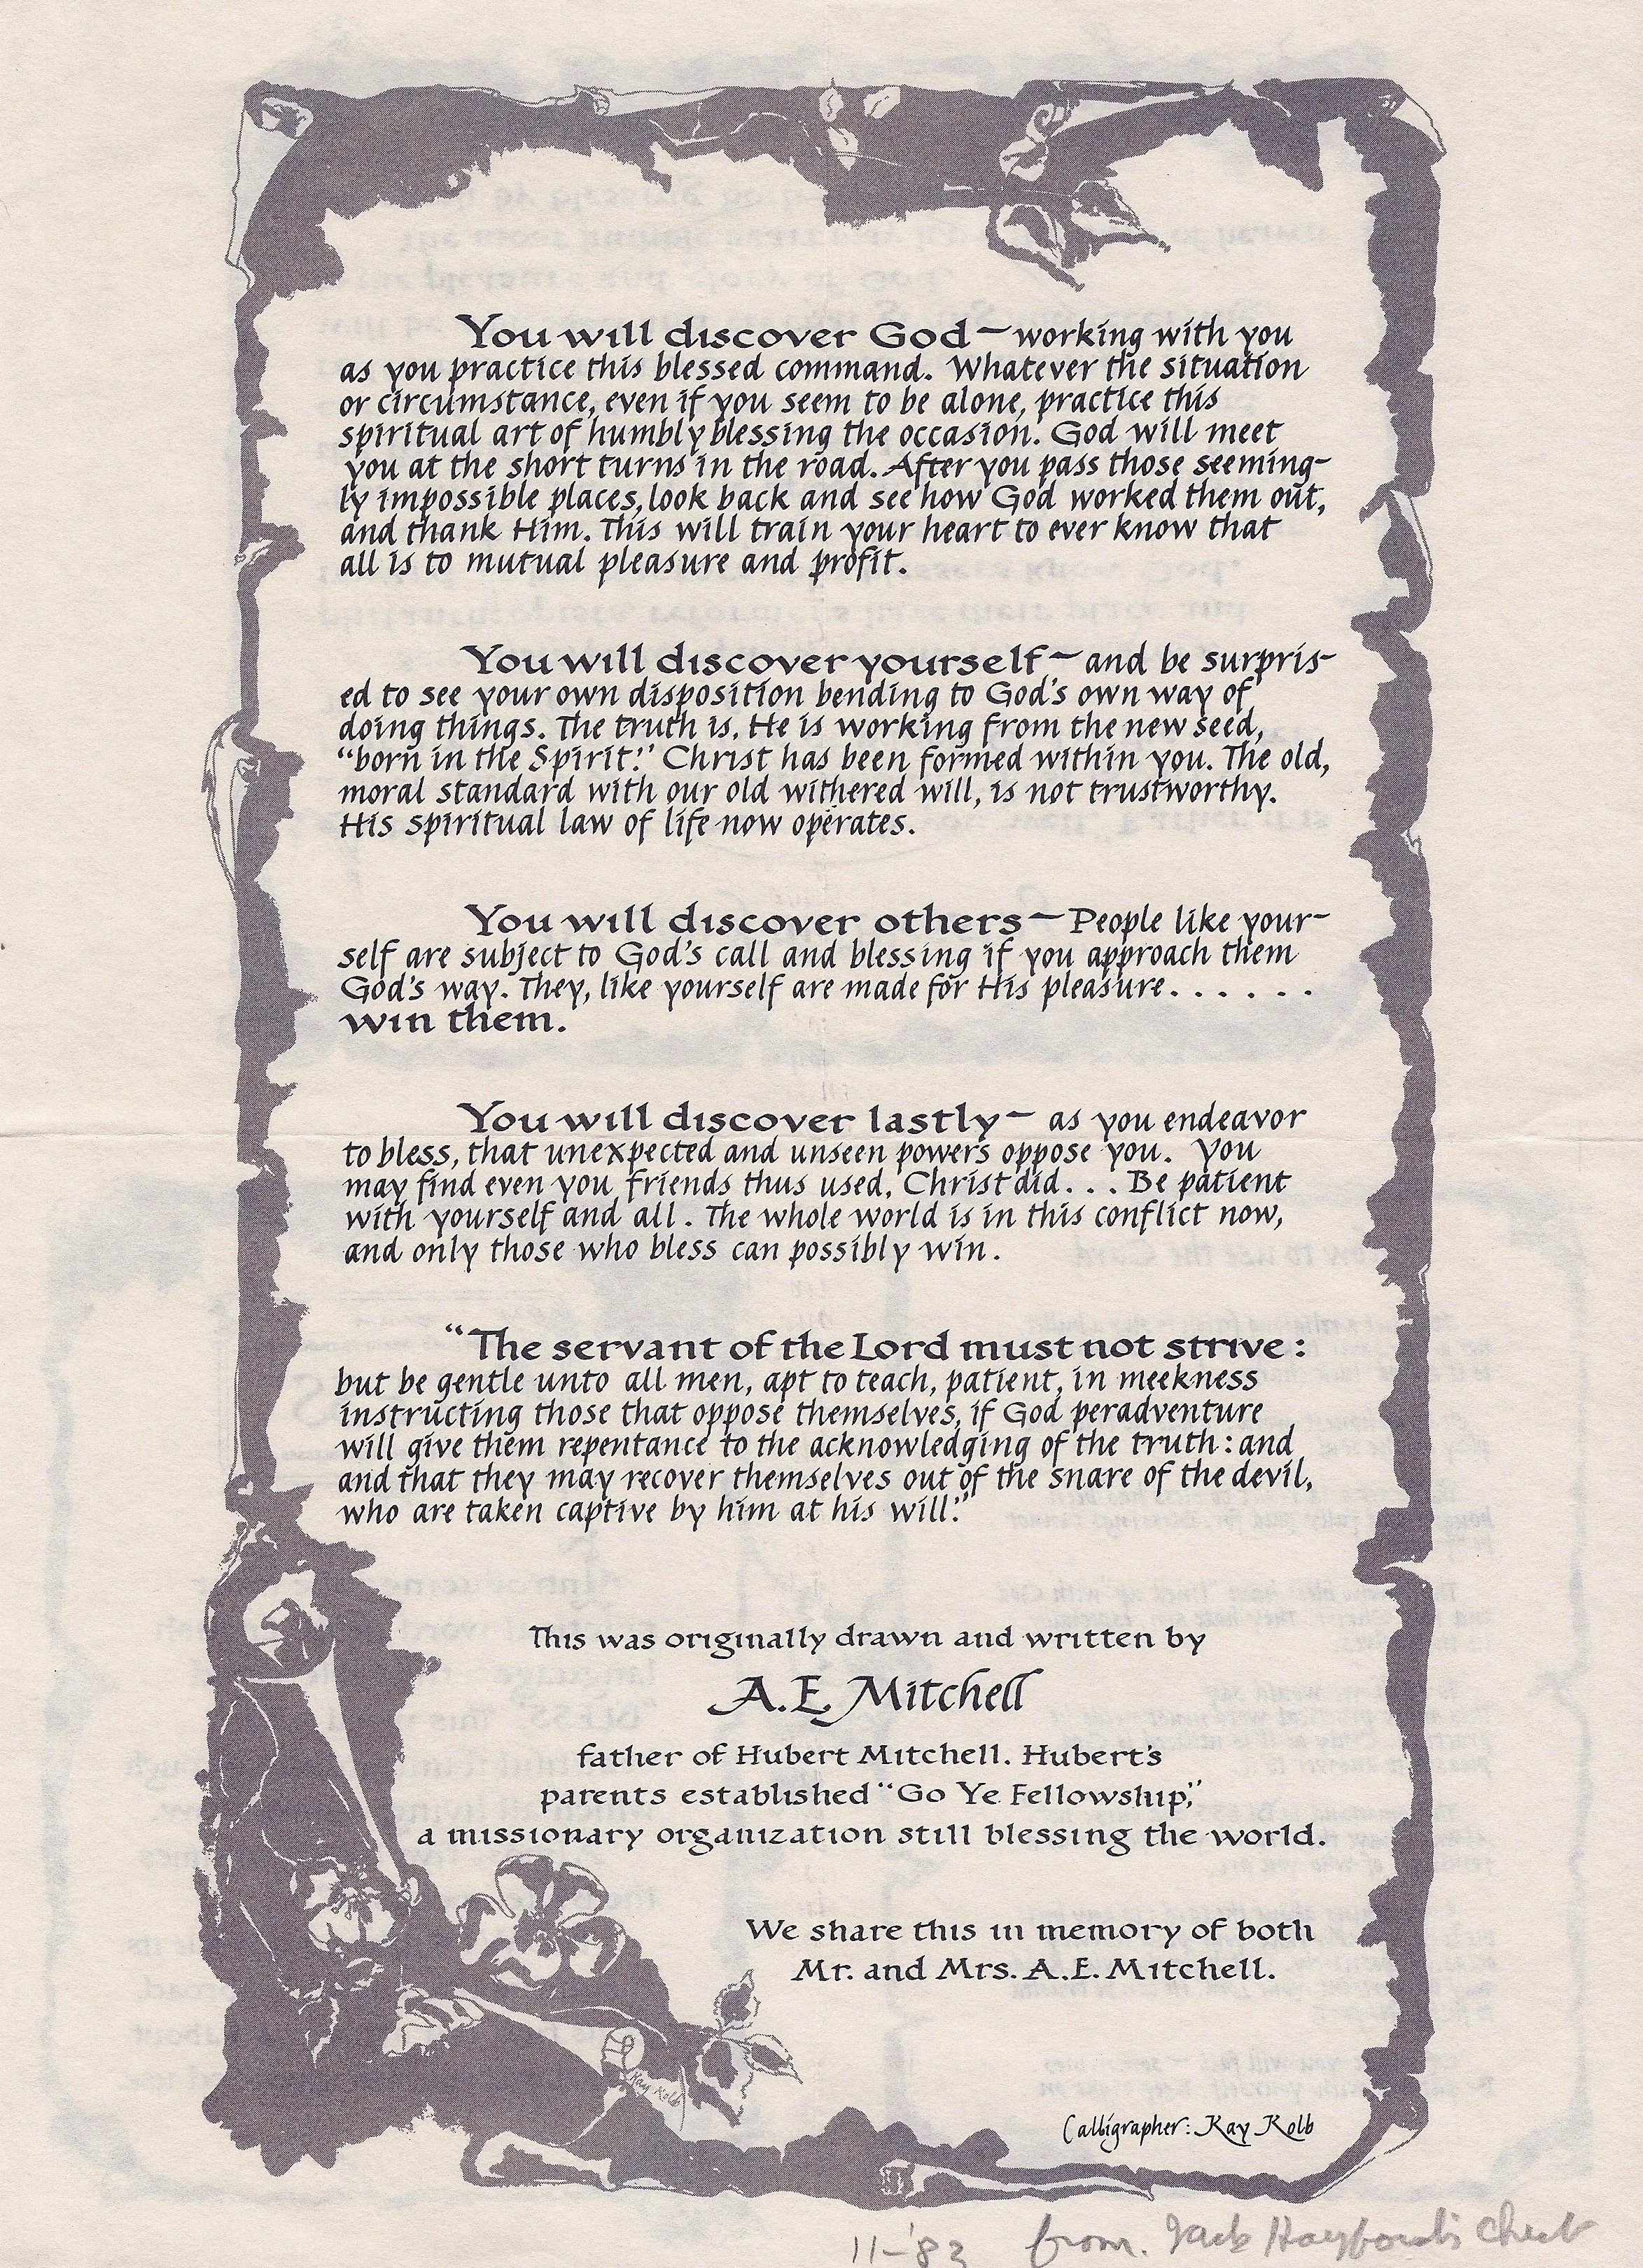 You will discover God — working with you
as you practice this blessed command. Whatever the situation
or circumstance, even if you seem to be alone, practice this
spiritual art of humbly blessing the occasion. God will meet
you at the short turns in the road. After you pass those seeming-
ly impossible places, look back and see how God worked them out,
and thank Him. This will train your heart to ever know that
all is to mutual pleasure and profit.
You will discover yourself — and be surpris-
ed to see your own disposition bending to God's own way of
doing things. The truth is, He is working from the new seed,
"born in the Spirit." Christ has been formed within you. The old,
moral standard with our old withered will, is not trustworthy.
His spiritual law of life now operates.
You will discover others — People like your-
self are subject to God's call and blessing if you approach them
God's way. They, like yourself are made for His pleasure......
win them.
You will discover lastly — as you endeavor
to bless, that unexpected and unseen powers oppose you. You
may find even you friends thus used, Christ did... Be patient
with yourself and all. The whole world is in this conflict now,
and only those who bless can possibly win.
"The servant of the Lord must not strive:
but be gentle unto all men, apt to teach, patient, in meekness
instructing those that oppose themselves, if God peradventure
will give them repentance to the acknowledging of the truth: and
and that they may recover themselves out of the snare of the devil,
who are taken captive by him at his will."
This was originally drawn and written by
A.E. Mitchell
father of Hubert Mitchell. Hubert's
parents established "Go Ye Fellowship,"
a missionary organization still blessing the world.
We share this in memory of both
Mr. and Mrs. A.E. Mitchell.
Kay Kolb
Calligrapher: Kay Kolb
11-'83 from. Jack Hayford's